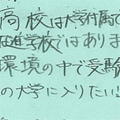 高校は大学付属で
進学校ではありま
環境の中で受験
の大学に入りたい